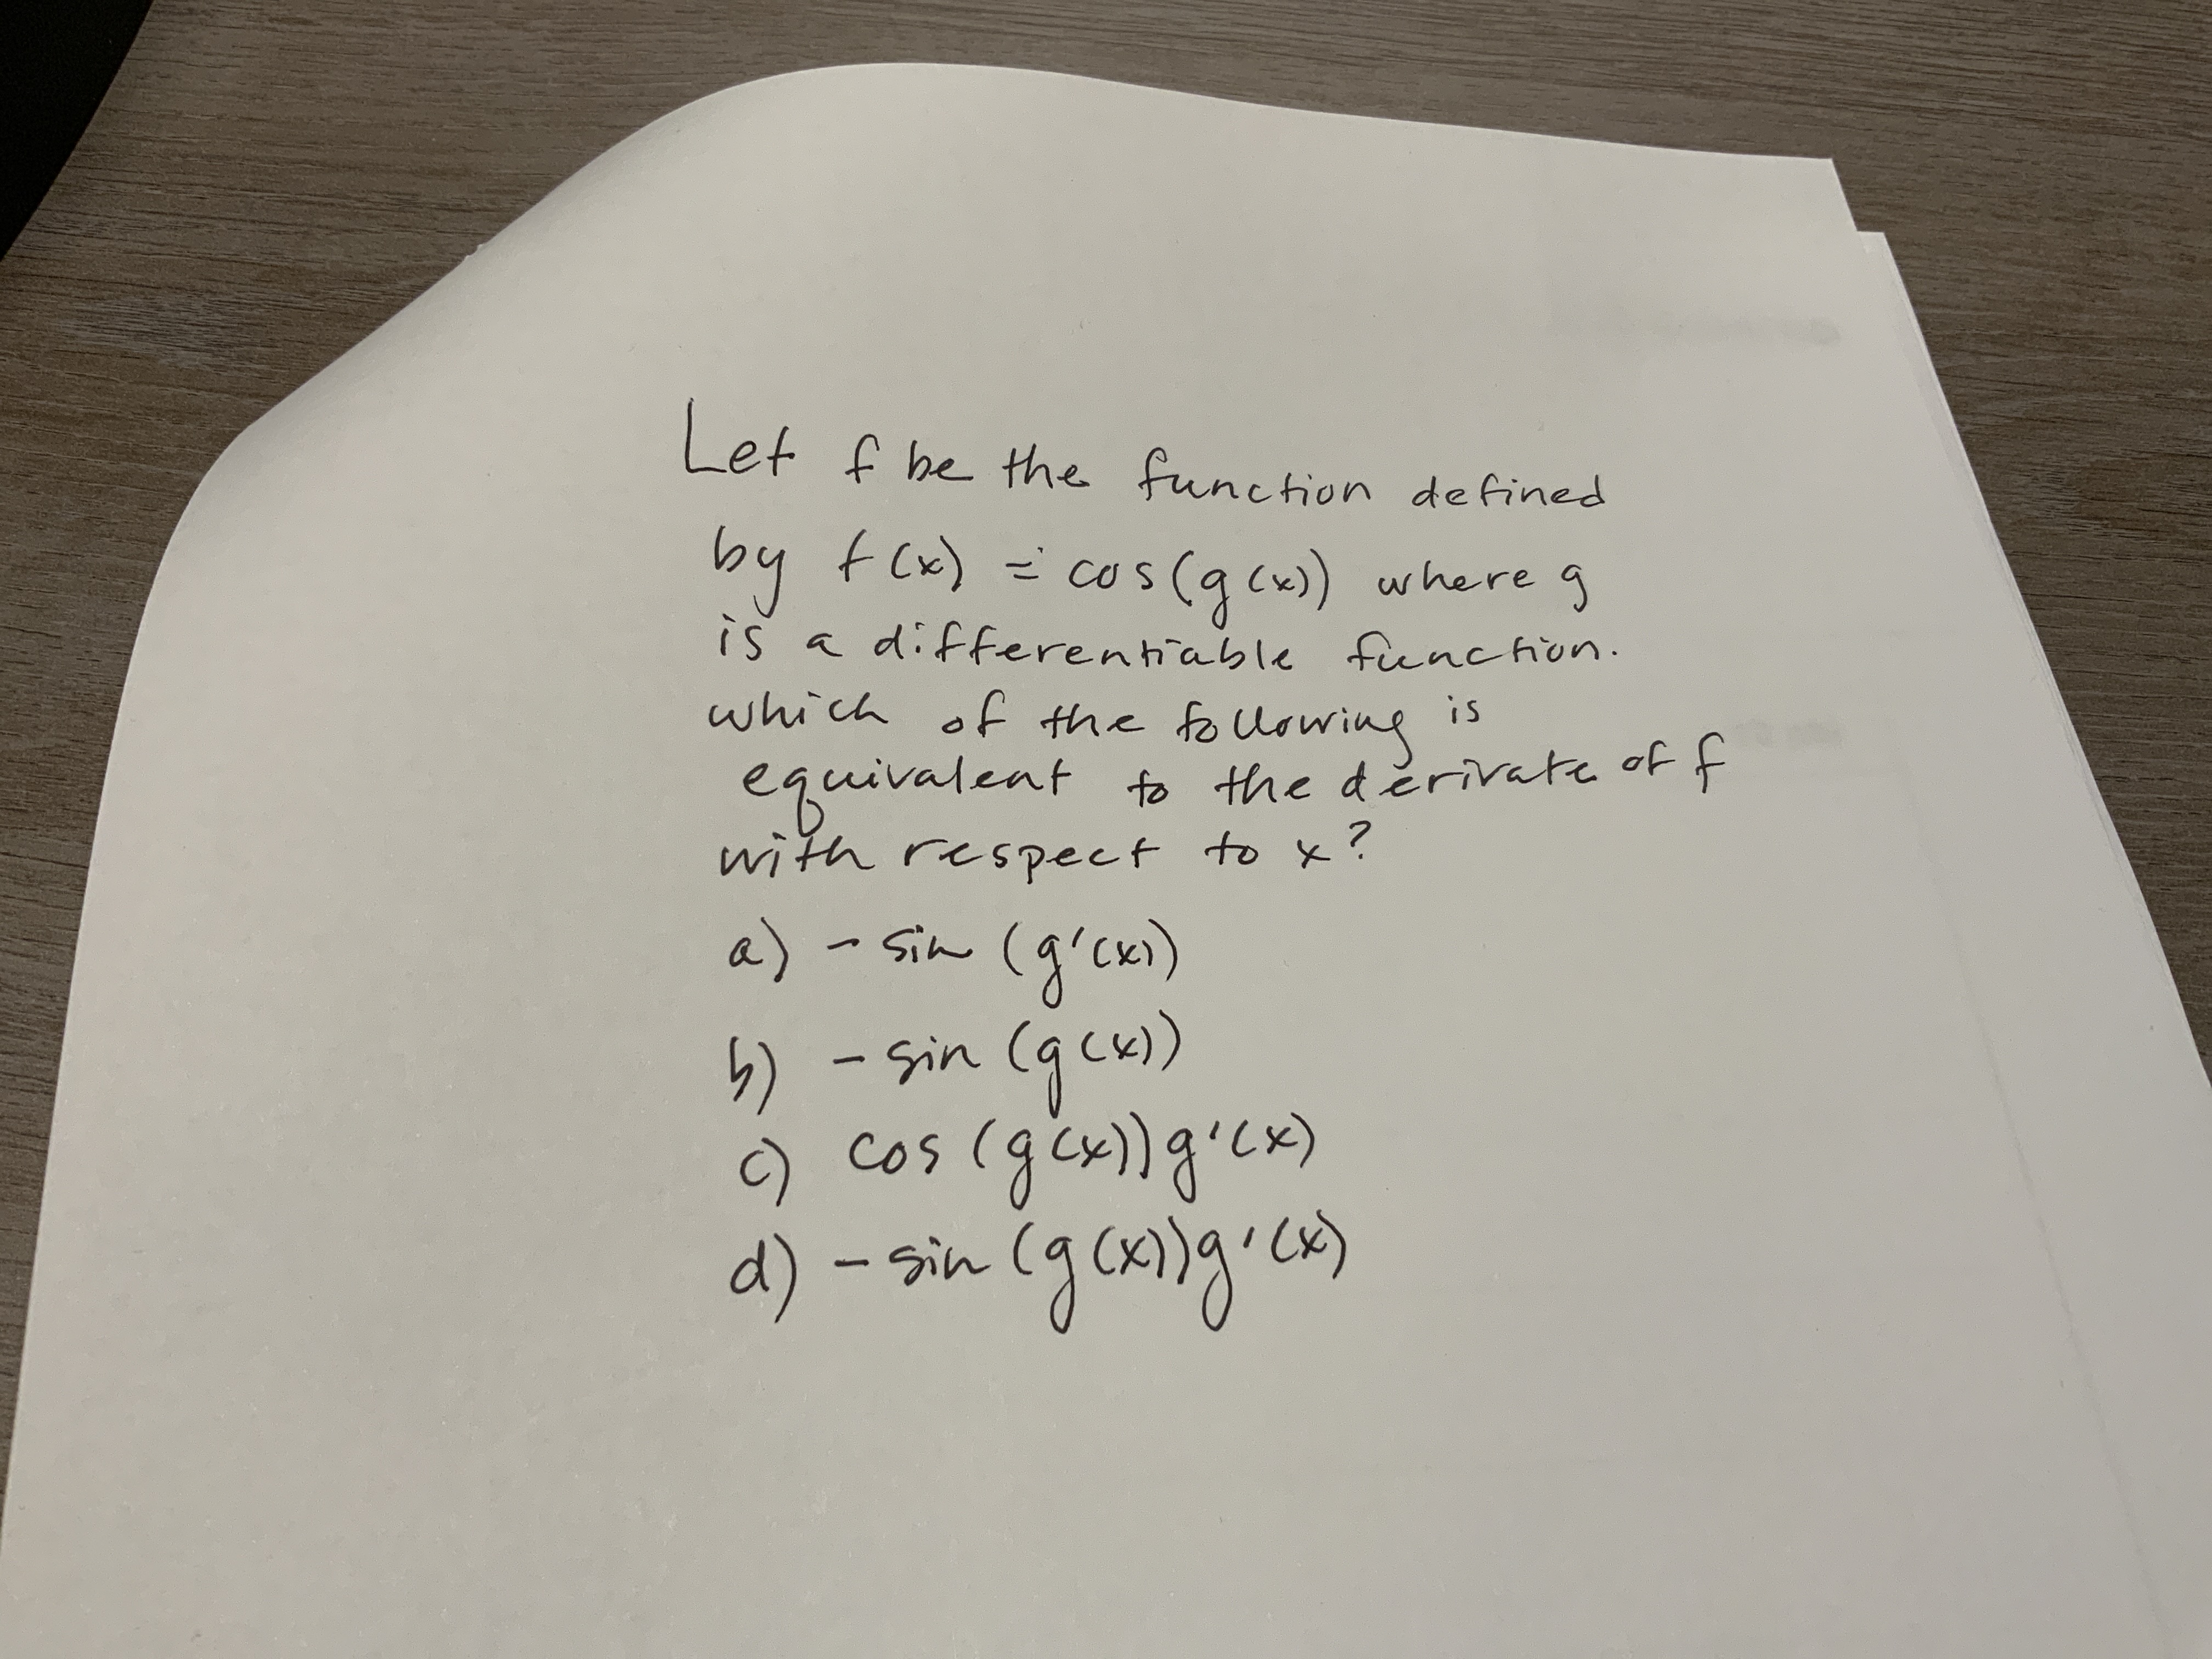 Let f be the function defined
by f(x) = cos(g(x)) where g
is a differentiable function.
which of the following is
equivalent to the derivate of f
with respect to x?
a) - sin (g'(x))
b) - sin (g(x))
c) cos (g(x))g'(x)
d) - sin (g(x))g'(x)